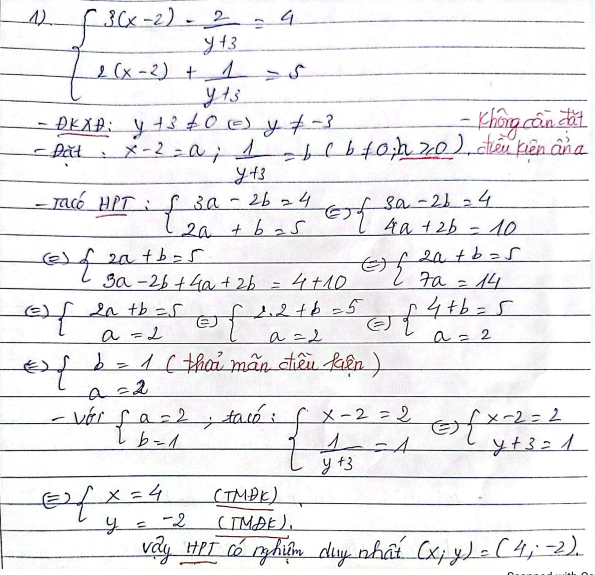 1) { 3(x-2) - 2/(y+3) = 4
{ 2(x-2) + 1/(y+3) = 5
- ĐKXĐ: y+3 ≠ 0 (=) y ≠ -3
- Không cần đặt
- Đặt : x-2 = a ; 1/(y+3) = b ( b ≠ 0; a ≥ 0 ). điều kiện ẩn a
- Ta có HPT : { 3a - 2b = 4 ; 2a + b = 5 (=) { 3a - 2b = 4 ; 4a + 2b = 10
(=) { 2a + b = 5 ; 3a - 2b + 4a + 2b = 4 + 10 (=) { 2a + b = 5 ; 7a = 14
(=) { 2a + b = 5 ; a = 2 (=) { 2.2 + b = 5 ; a = 2 (=) { 4 + b = 5 ; a = 2
(=) { b = 1 ( thoả mãn điều kiện ) ; a = 2
- Với { a = 2 ; b = 1 ; ta có : { x-2 = 2 ; 1/(y+3) = 1 (=) { x-2 = 2 ; y+3 = 1
(=) { x = 4 (TMĐK)
{ y = -2 (TMĐK).
Vậy HPT có nghiệm duy nhất (x; y) = (4; -2).